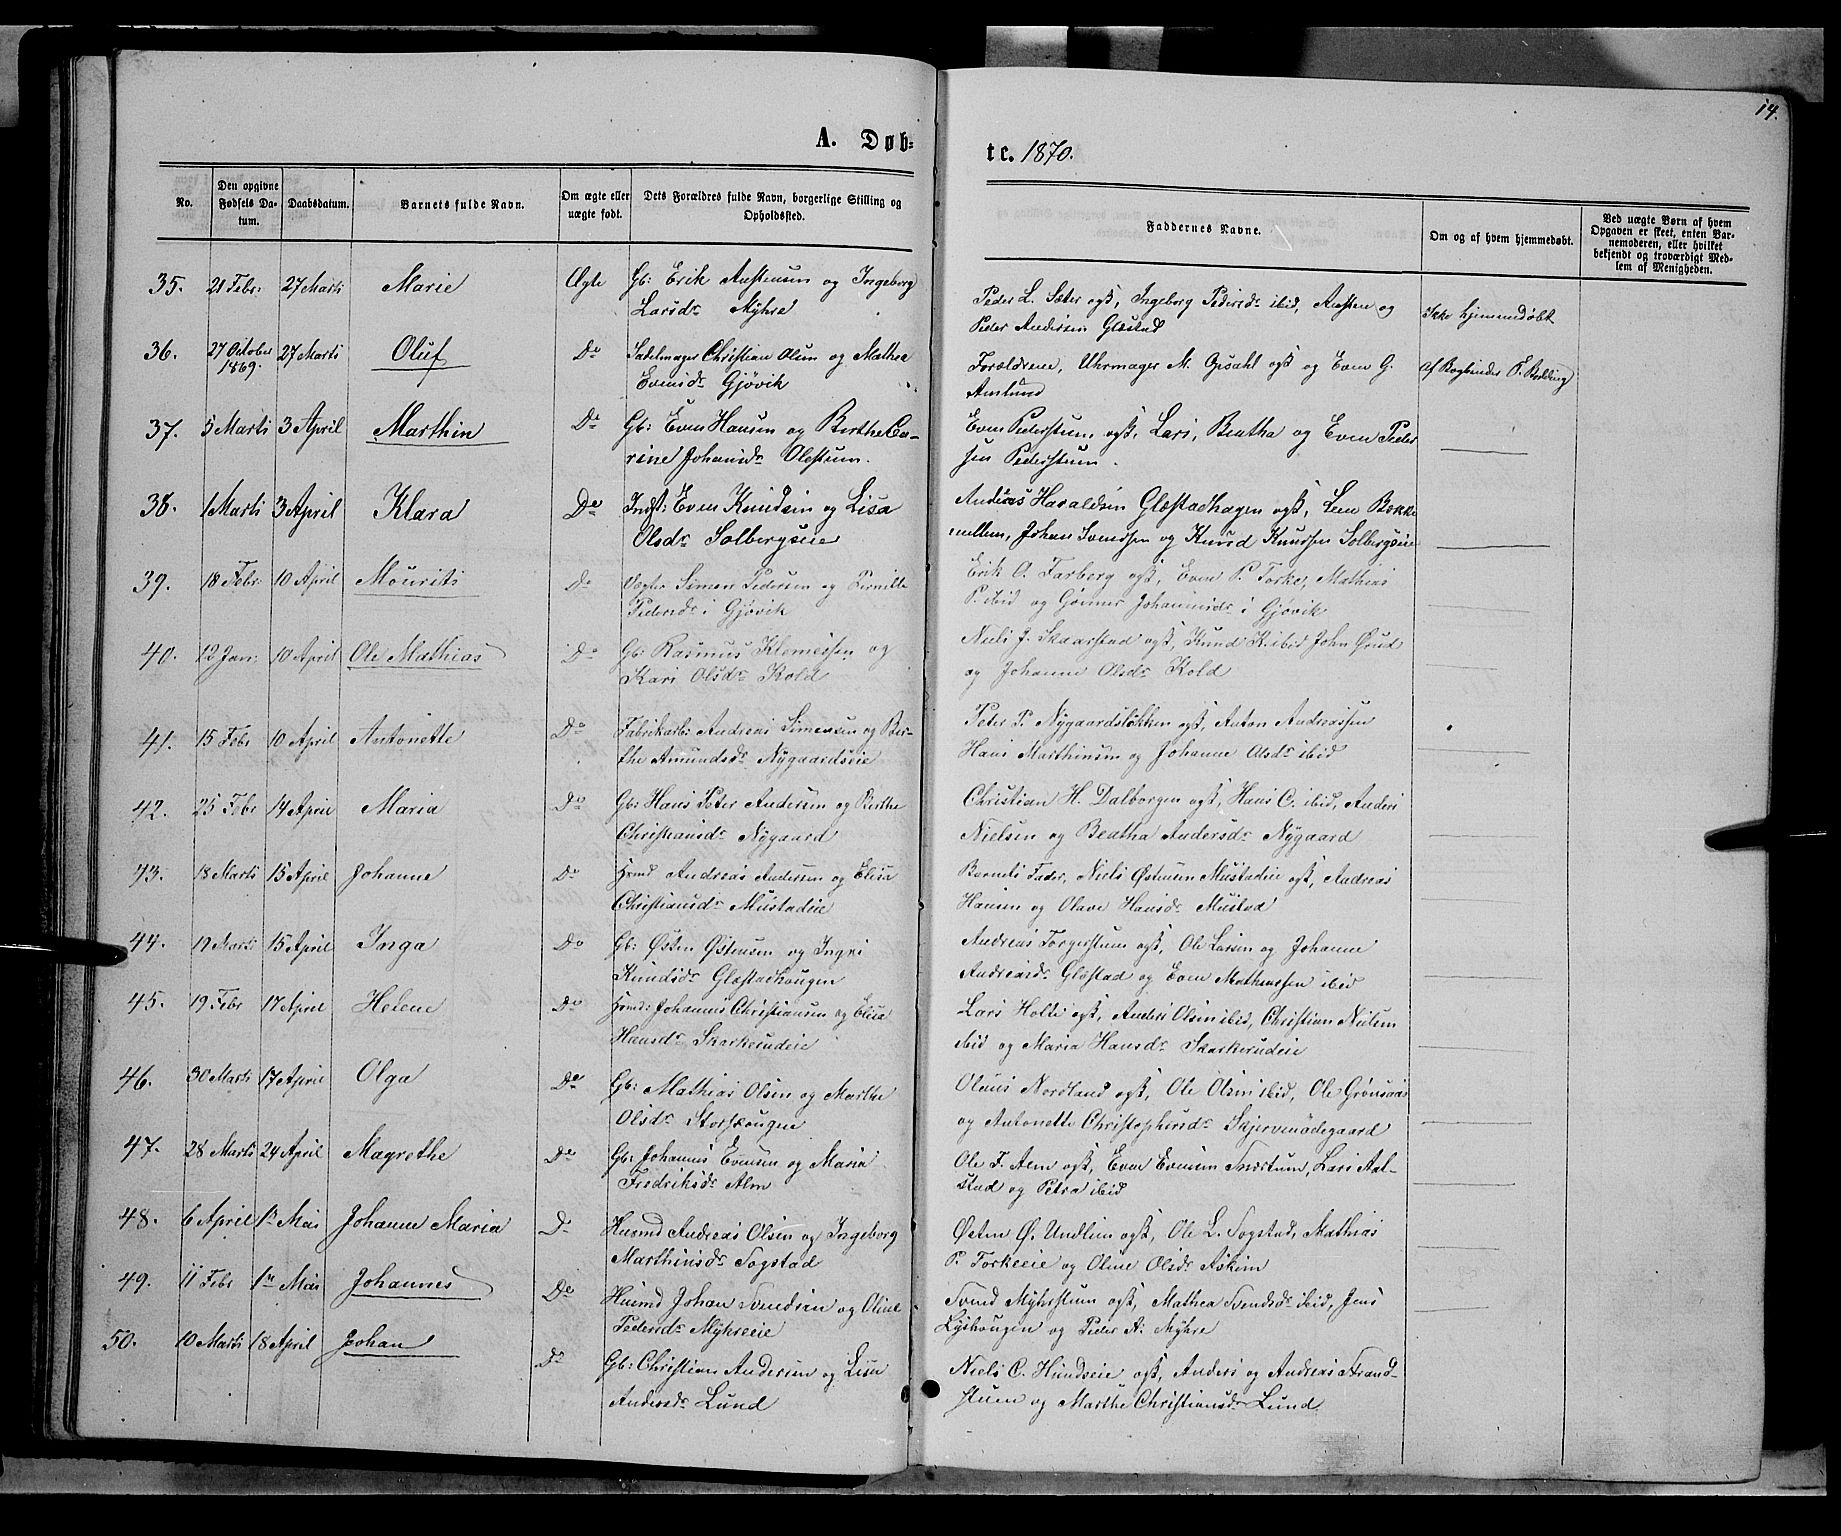 14.
A. Døb-
te. 1870.
No.
Den opgivne Fødsels Da-tum.
Daabsdatum.
Barnets fulde Navn.
Om ægte eller uægte født.
Dets Forældres fulde Navn, borgerlige Stilling og Opholdssted.
Faddernes Navne.
Om og af hvem hjemmedøbt.
Ved uægte Børn af hvem
Opgaven er skeet, enten Bar-
nemoderen, eller hvilket
bekjendt og troværdigt Med-
lem af Menigheden.
35. 21 Febr: 27 Marti Marie Ægte Gb: Erik Anstensen og Ingeborg
Larsdr Myhre
Peder L. Sæter ogst, Ingeborg Pedersdr ibid, Ansten og
Peder Andersen Glæstad
Ikke hjemmedøbt
36. 27 October 1869. 27 Marti Oluf Do Sadelmager Christian Olsen og Mathea
Evensdr Gjøvik
Forældrene, Uhrmager M. Opsahl ogst og Even G.
Amlund
af Bogbinder
37. 5 Marti 3 April Marthin Do Gb: Even Hansen og Berthe Ca-
rine Johansdr Olestuen.
Even Pederstuen ogst, Lars, Beatha og Even Peder
sen Pederstuen.
38. 1 Marti 3 April Klara Do Indst: Even Knudsen og Lisa
Olsdr Solbergseie
Andreas Haraldsen Glæstadhagen ogst, Lene Bække
mellem, Johan Svendsen og Knud Knudsen Solbergseie
39. 18 Febr: 10 April Mourits Do Vægter Simen Pedersen og Pernille
Pedersdr i Gjøvik
Erik O. Farberg ogst, Even P. Torke, Mathias
P. ibid og Gunner Johannesdr i Gjøvik
40. 12 Jan: 10 April Ole Mathias Do Gb: Rasmus Klemetsen og
Kari Olsdr Kold
Niels J. Skaarstad ogst, Knud K. ibid John Ørud
og Johanne Olsdr Kold
41. 15 Febr 10 April Antonette Do Fabrikarb: Andreas Simensen og Ber-
the Amundsdr Nygaardseie
Peter P. Nygaardsløkken ogst, Anton Andreassen
Hans Marthinsen og Johanne Olsdr ibid
42. 25 Febr 14 April Maria Do Gb: Hans Peter Andersen og Berthe
Christiansdr Nygaard
Christian H. Dalborgen ogst, Hans C. ibid, Anders
Nielsen og Beatha Andersdr Nygaard
43. 18 Marti 15 April Johanne Do Hsmd Andreas Andersen og Elisa
Christiansdr Mustadeie
Barnets Fader, Niels Østensen Mustadeie ogst, Andreas
Hansen og Olave Hansdr Mustad
44. 17 Marti 15 April Inga Do Gb: Østen Østensen og Ingri
Knudsdr Glæstadhougen
Andreas Torgerstuen ogst, Ole Larsen og Johanne
Andreasdr Glæstad og Even Mathiassen ibid
45. 19 Febr 17 April Helene Do Hsmd: Johannes Christiansen og Elisa
Hansdr Skarkerudeie
Lars Holte ogst, Anders Olsen ibid, Christian Nielsen
ibid og Maria Hansdr Skarkerudeie
46. 30 Marti 17 April Olga Do Gb: Mathias Olsen og Marthe
Olsdr Storhougen
Olaus Nordland ogst, Ole Olsen ibid, Ole Grønsaas
og Antonette Christophersdr Skjervenødegaard
47. 28 Marti 24 April Magrethe Do Gb: Johannes Evensen og Maria
Fredriksdr Alm
Ole F. Alm ogst, Even Evensen Snertum, Lars Aal-
stad og Petra ibid
48. 6 April 1ste Mai Johanne Maria Do Husmd Andreas Olsen og Ingeborg
Marthinsdr Sogstad
Østen Ø. Undlien ogst, Ole L. Sogstad, Mathias
P. Torkeeie og Oline Olsdr Askim
49. 11 Febr 1ste Mai Johannes Do Husmd Johan Svendsen og Oline
Pedersdr Myhreeie
Svend Myhrstuen ogst, Mathea Svendsdr ibid, Jens
Lyshougen og Peder A. Myhre
50. 10 Marti 18 April Johan Do Gb: Christian Andersen og Lisa
Andersdr Lund
Niels C. Hundseie ogst, Anders og Andreas Strand-
stuen og Marthe Christiansdr Lund